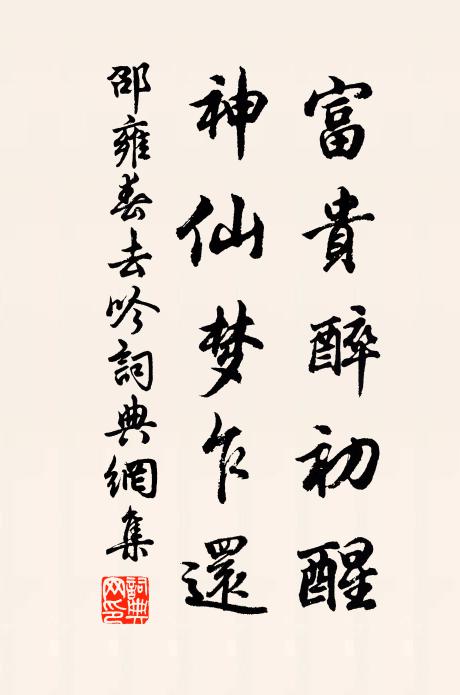 富貴醉初醒
神仙梦乍還
邵雍春去吟詞典網集
詞典网印